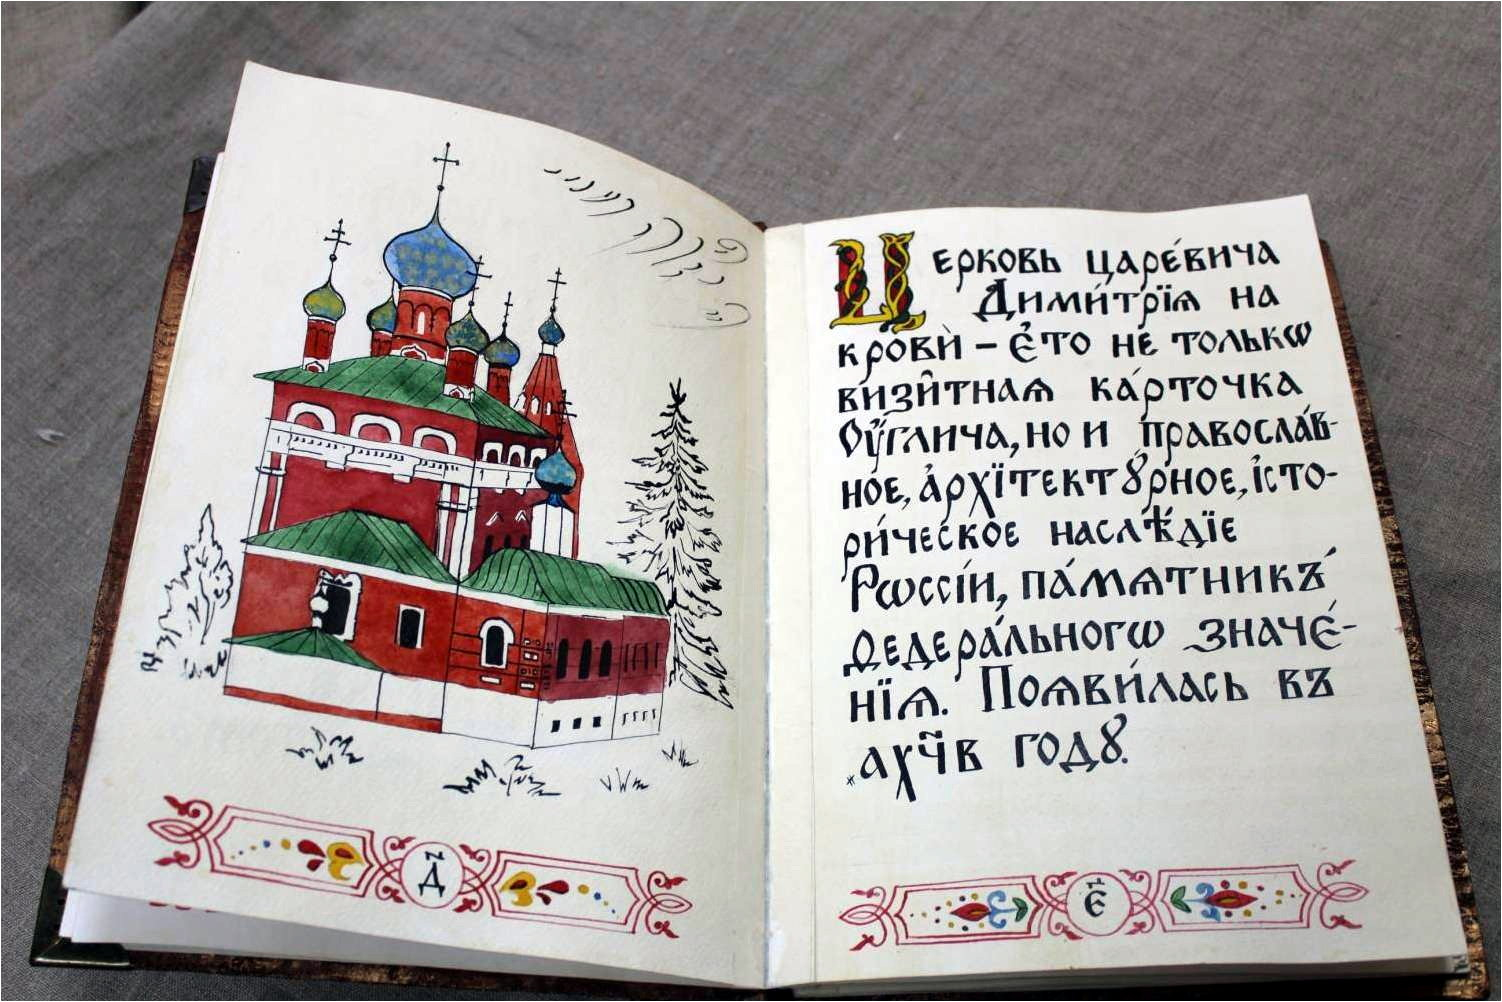 Церковь царе́вича
Дими́трїѧ на
крови̇̀ – є҆́то не толькѡ
визи̑тная ка́рточка
Оу҆́глича, но и правосла́в-
ное, а҆рхїтектꙋ́рное, і҆сто-
ри́ческое наслѣ́дїе
Рѡссі́и, па́мѧтникъ
ѳедера́льногѡ значе́-
нїѧ. Поѧви́лась въ
҂ахч҃в годꙋ̀.
д҃
є҃